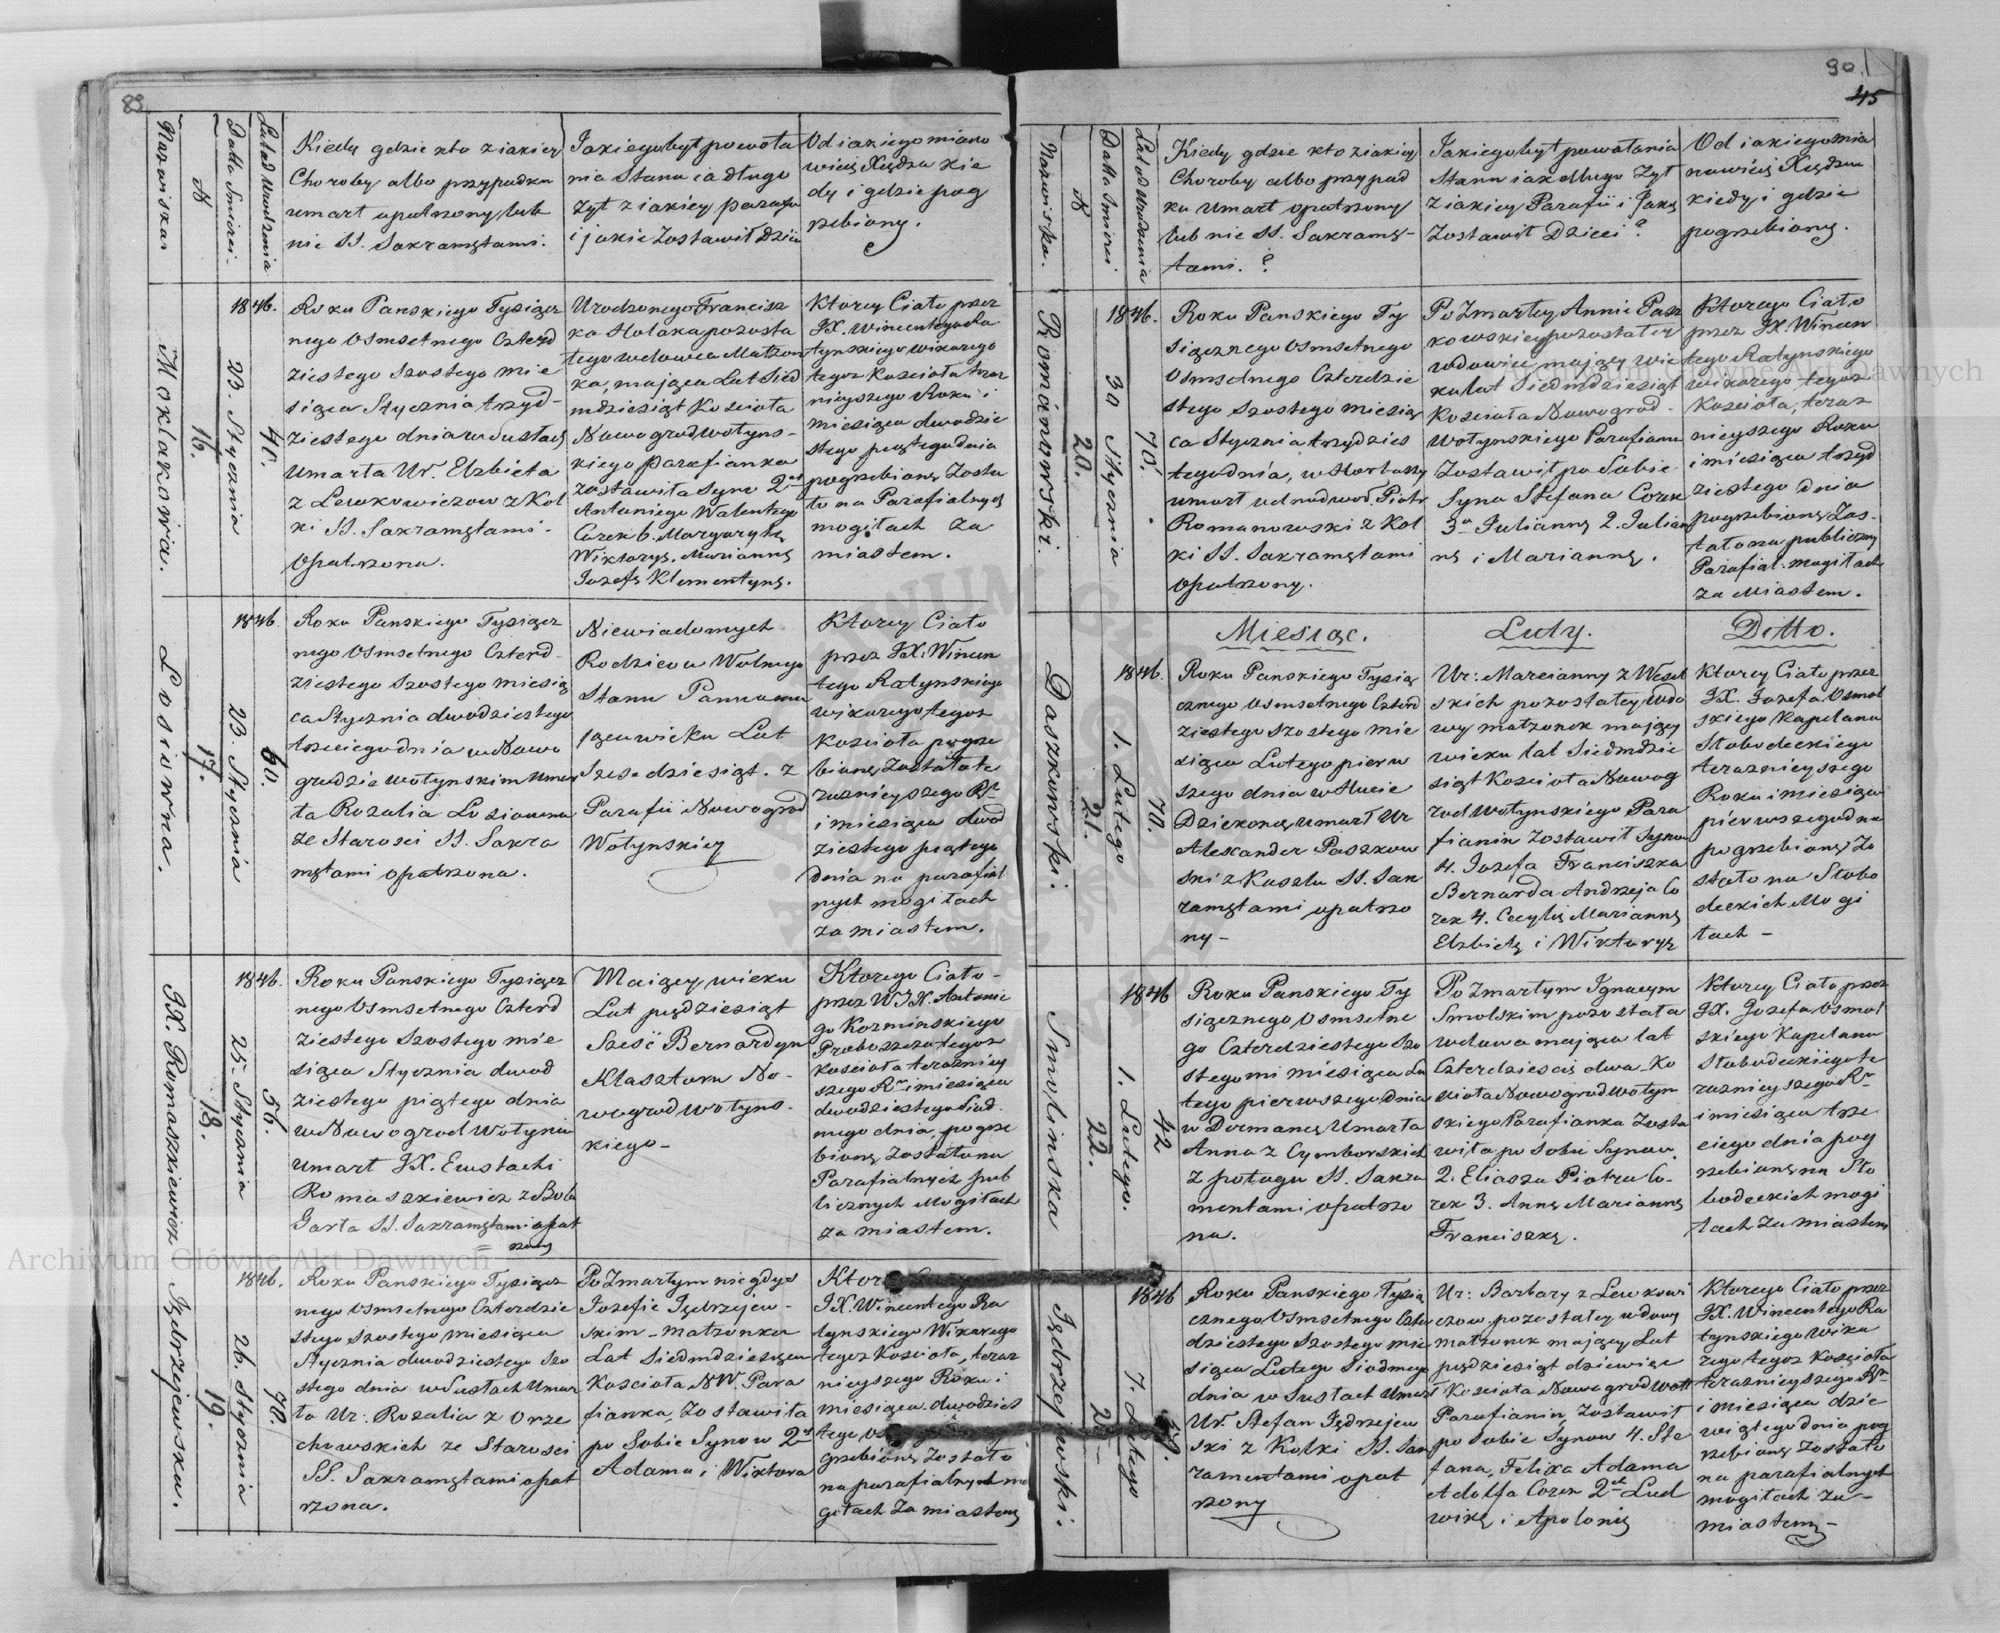 89
Nazwiska
N
Datta Smierci.
Lat od Urodzenia
Kiedy gdzie kto z iakiey
Choroby albo przypadku
umart opatrzony lub
nie SS. Sakramętami.
Jakiego byt powoła
nia Stanu ia długo
żył z iakiey Parafii
i jakie Zostawił Dzieci
Od iakiego miano
wicie Xiędza kie
dy i gdzie pog
rzebiony.
Mokłakowia.
16.
1846.
23. Stycznia
Roku Panskiego Tysiącz
nego Osmsetnego Czterd
ziestego Szostego mie
siąca Stycznia trzyd-
ziestego dnia w Susłach
Umarła Ur. Elzbieta
z Lewkowiczow z Kol
ki SS. Sakramętami-
Opatrzona.
Urodzonego Francisz
ka pozosta
tego wdowca Małzon
ka, mająca Lat Sied
mdziesiąt Koscioła
Nowogrodwołyns-
kiego parafianka
zostawiła Synow 2ch
Antoniego Walentego
Corek 6. Margarytę
Wiktoryę, Mariannę
Jozefę Klementynę.
Ktorey Ciało przez
JX. Wincentego Ra
tynskiego wikarego
tegoż Koscioła teraz
nieyszego Roku i
miesiąca dwodzie
stego piątego dnia
pogrzebione Zosta
ło na Parafialnych
mogiłach za
miastem.
Łosiowna.
17.
1846.
23. Stycznia
60.
Roku Panskiego Tysiącz
nego Osmsetnego Czterd-
ziestego Szostego miesią
ca Stycznia dwodziestego
trzeciego dnia w Nowo
grodzie wołynskim Umar
ła Rozalia Łosiowna
ze Starosci SS. Sakra
mętami opatrzona.
Niewiadomych
Rodzicow Wolnego
Stanu Panna ma
jąca wieku Lat
Szesdziesiąt. z
Parafii Nowogrod
Wołynskiey
Ktorey Ciało
przez JX. Wincen
tego Ratynskiego
wikarego tegoż
Koscioła pogrze
bione Zostało te
raznieyszego Rku
i miesiąca dwod
ziestego piątego
dnia na parafial
nych mogiłach
za miastem.
JX. Romaszkiewicz
18.
1846.
25. Stycznia
56.
Roku Panskiego Tysiącz
nego Osmsetnego Czterd
ziestego Szostego mie
siąca Stycznia dwod
ziestego piątego dnia
w Nowogrod Wołyniu
umart JX. Eustachi
Romaszkiewicz z Bola
Garła SS. Sakramętami opat
rzony
Maiący wieku
Lat pędziesiąt
Szesć Bernardyn
Klasztoru No-
wogrodwołyns-
kiego-
Ktorego Ciało-
przez WJX. Antonie
go Kozminskiego
Proboszcza tegoż
koscioła teraźniey
szego Rku i miesiąca
dwodziestego Siod
mego dnia, pogrze
bione Zostało na
Parafialnych pub
licznych Mogiłach
za miastem.
Jędrzejewska.
19.
1846.
26. Stycznia
70.
Roku Panskiego Tysiącz
nego Osmsetnego Czterdzie
stego Szostego miesiąca
Stycznia dwodziestego Szo
stego dnia w Susłach Umar
ła Ur: Rozalia z Orze
chowskich ze Starosci
SS. Sakramętami opat
rzona.
Po Zmarłym niegdys
Jozefie Jędrzejew-
skim- małzonka
Lat Siedmdziesąca
Koscioła NW. Para
fianka, Zostawiła
po Sobie Synow 2ch
Adama i Wiktora
JX. Wincentego Ra
tynskiego Wikarego
tegoz Koscioła, teraz
nieyszego Roku i
miesiąca dwodzies
grzebione Zostało
na parafialnych mo
giłach Za miastem
90.
45
Nazwiska.
N
Datta Smierci
Lat od Urodzenia
Kiedy gdzie kto z iakiey
Choroby albo przypad
ku Umart opatrzony
lub nie SS. Sakramę-
tami. ?
Jakiego byt powołania
Stanu iak długo Zył
z iakiey Parafii i Jakę
Zostawił Dzieci ?
Od iakiego mia
nowicie Xiędza
kiedy i gdzie
pogrzebiony.
Romanowski.
20.
1846.
30 Stycznia
70.
Roku Panskiego Ty
siącznego Osmsetnego
Osmsetnego Czterdzie
stego Szostego miesią
ca Stycznia trzydzies
tego dnia, w
umart Piotr
Romanowski z Kol
ki SS. Sakramętami
opatrzony.
Po Zmarłey Annie Pasz
kowskiey pozostałey
wdowiec maiący wie
ku lat Siedmdziesiąt
Koscioła Nowogrod-
Wołynskiego Parafianin
Zostawił po Sobie
Syna Stefana Corek
3 Juliannę 2. Julian
nę i Mariannę.
Ktorego Ciało
przez JX Wincen
tego Ratynskiego
wikarego tegoz
Koscioła, teraz
nieyszego Roku
i miesiąca trzyd
ziestego dnia
pogrzebione Zos-
tało na publiczny
Parafial. mogiłach
za Miastem.
Miesiąc. Luty. Ditto.
Daszkowski.
21.
1846.
1. Lutego
70.
Roku Panskiego Tysią
cznego Osmsetnego Czterd
ziestego Szostego mie
siąca Lutego pierw
szego dnia w Hucie
Dziekoney Umart Ur
Alexander Paszkow
ski z Kaszlu SS. Sak
ramętami opatrzo
ny-
Ur: Marcianny z Wesoł
skich pozostałey wdo
wy małzonek maiący
wieku lat Siedmdzie
siąt Koscioła Nowog
rod Wołynskiego Para
fianin Zostawił Synow
4. Jozefa Franciszka
Bernarda Andrzeja Co
rek 4. Cecylię Mariannę
Elzbietę i Wiktoryę
Ktorey Ciało przez
JX. Jozefa Osmol
skiego Kapelana
Słobodeckiego
teraznieyszego
Roku i miesiąca
pierwszego dnia
pogrzebione Zo
stało na Słobo
deckich Mogi
łach-
Smolinska
22.
1846
1. Lutego.
42
Roku Panskiego Ty
siącznego Osmsetne
go Czterdziestego Szo
stego mi miesiąca Lu
tego pierwszego dnia
w Dermaney Umarła
Anna z Cymborskich
z połogu SS. Sakra
mentami opatrzo
na.
Po Zmarłym Ignacym
Smolskim pozostała
wdowa mająca lat
Czterdziesci dwa Ko
scioła Nowogrodwołyn
skiego Parafianka Zosta
wiła po Sobie Synow.
2. Eliasza Piotra Co-
rek 3. Annę Mariannę
Franciszkę.
Ktorey Ciało przez
JX. Jozefa Osmol
skiego Kapelana
Słobodeckiego te
raznieyszego Rku
i miesiąca trze
ciego dnia pog
rzebione na Sło
bodeckich mogi
łach za miastem
Jędrzejewski.
1846
7. Lutego
59.
Roku Panskiego Tysią
cznego Osmsetnego Czter
dziestego Szostego mie
siąca Lutego Siodmego
dnia w Susłach Umart
Ur. Stefan Jędrzejew
ski z Kolki SS. Sak
ramentami opat
rzony
Ur: Barbary z Lewkowi
czow pozostałey wdowy
małzonek maiący Lat
pędziesiąt dziewięc
Koscioła Nowogrod Woł
Parafianin, Zostawił
po Sobie Synow 4. Ste
fana, Felixa Adama
Adolfa Corek 2ch Lud
wikę i Apolonię
Ktorego Ciało przez
JX. Wincentego Ra
tynskiego wika
rego tegoz Koscioła
teraznieyszego Rku
i miesiąca dzie
wiątego dnia pog
rzebione Zostało
na parafialnych
mogiłach za-
miastem-
Archiwum Główne Akt Dawnych
Archiwum Główne Akt Dawnych